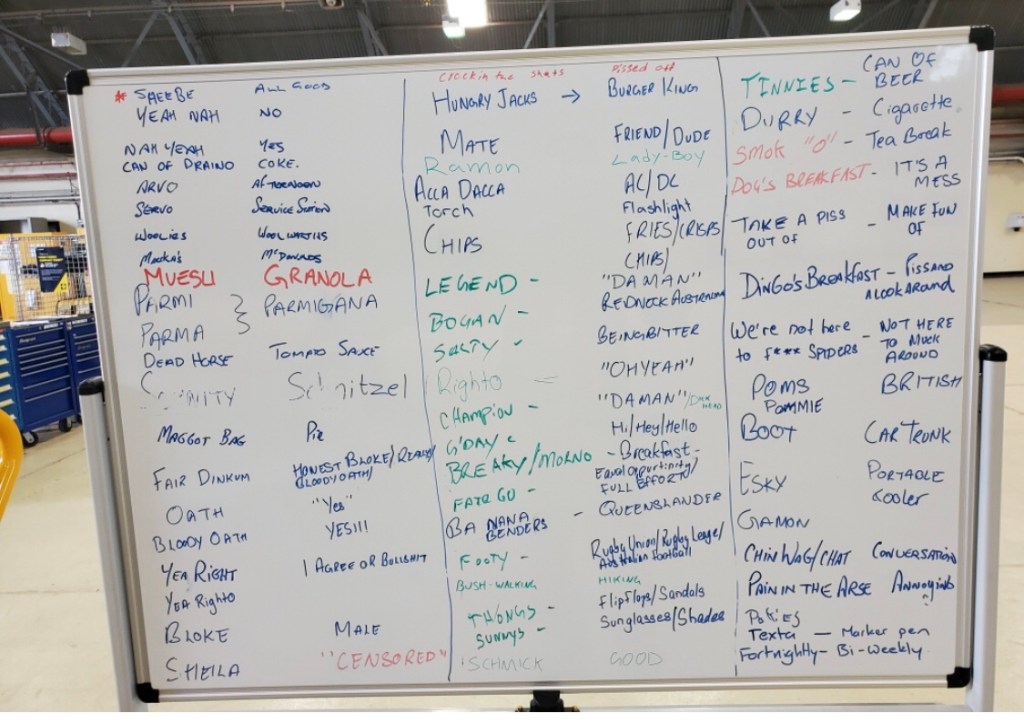 * SHEEBE ALL GOOD
YEAH NAH NO
NAH YEAH YES
CAN OF DRAINO COKE.
ARVO AFTERNOON
SERVO SERVICE STATION
WOOLIES WOOLWARTHS
MACKA'S McDONALDS
MUESLI GRANOLA
PARMI } PARMIGANA
PARMA
DEAD HORSE TOMATO SAUCE
Schnitzel
MAGGOT BAG Pie
FAIR DINKUM HONEST BLOKE/REALLY/
BLOODY OATH/
OATH "Yes"
BLOODY OATH YES!!!
YEA RIGHT I AGREE OR BULLSHIT
YEA RIGHTO
BLOKE MALE
SHEILA "CENSORED"
Crackin the shats Pissed off
HUNGRY JACKS → BURGER KING
MATE FRIEND/DUDE
Ramon Lady-Boy
ACCA DACCA AC/DC
Torch Flashlight
CHIPS FRIES/CRISPS
CHIPS/
LEGEND - "DA MAN"
BOGAN - REDNECK AUSTRALIAN
SALTY - BEING BITTER
Righto - "OH YEAH"
CHAMPION - "DA MAN"/DICK HEAD
G'DAY - Hi/Hey/Hello
BREAKY/MORNO - Breakfast -
FAIR GO - Equal opportunity/
FULL EFFORT/
BANANA BENDERS - QUEENSLANDER
FOOTY - Rugby Union/Rugby League/
Australian Football
BUSH-WALKING HIKING
THONGS - Flipflops/Sandals
SUNNYS - Sunglasses/Shades
SCHMICK GOOD
TINNIES - CAN OF
BEER
DURRY - Cigarette
SMOK "O" - Tea Break
DOG'S BREAKFAST - IT'S A
MESS
TAKE A PISS - MAKE FUN
OUT OF OF
DINGO'S BREAKFAST - PISS AND
A LOOK AROUND
We're not here - NOT HERE
to F*** SPIDERS TO MUCK
AROUND
POMS BRITISH
POMMIE
BOOT CAR TRUNK
ESKY PORTABLE
Cooler
GAMON
CHIN WAG/CHAT CONVERSATION
PAIN IN THE ARSE ANNOYING
POKIES
Texta - Marker pen
Fortnightly - Bi-Weekly